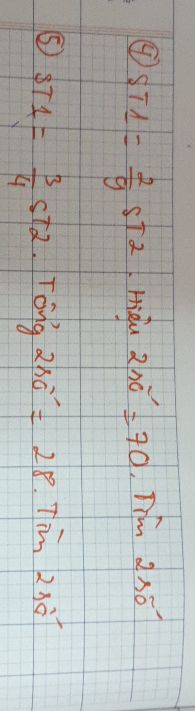 ④ ST1 = 2/9 ST2. Hiệu 2 số = 70. Tìm 2 số
⑤ ST1 = 3/4 ST2. Tổng 2 số = 28. Tìm 2 số